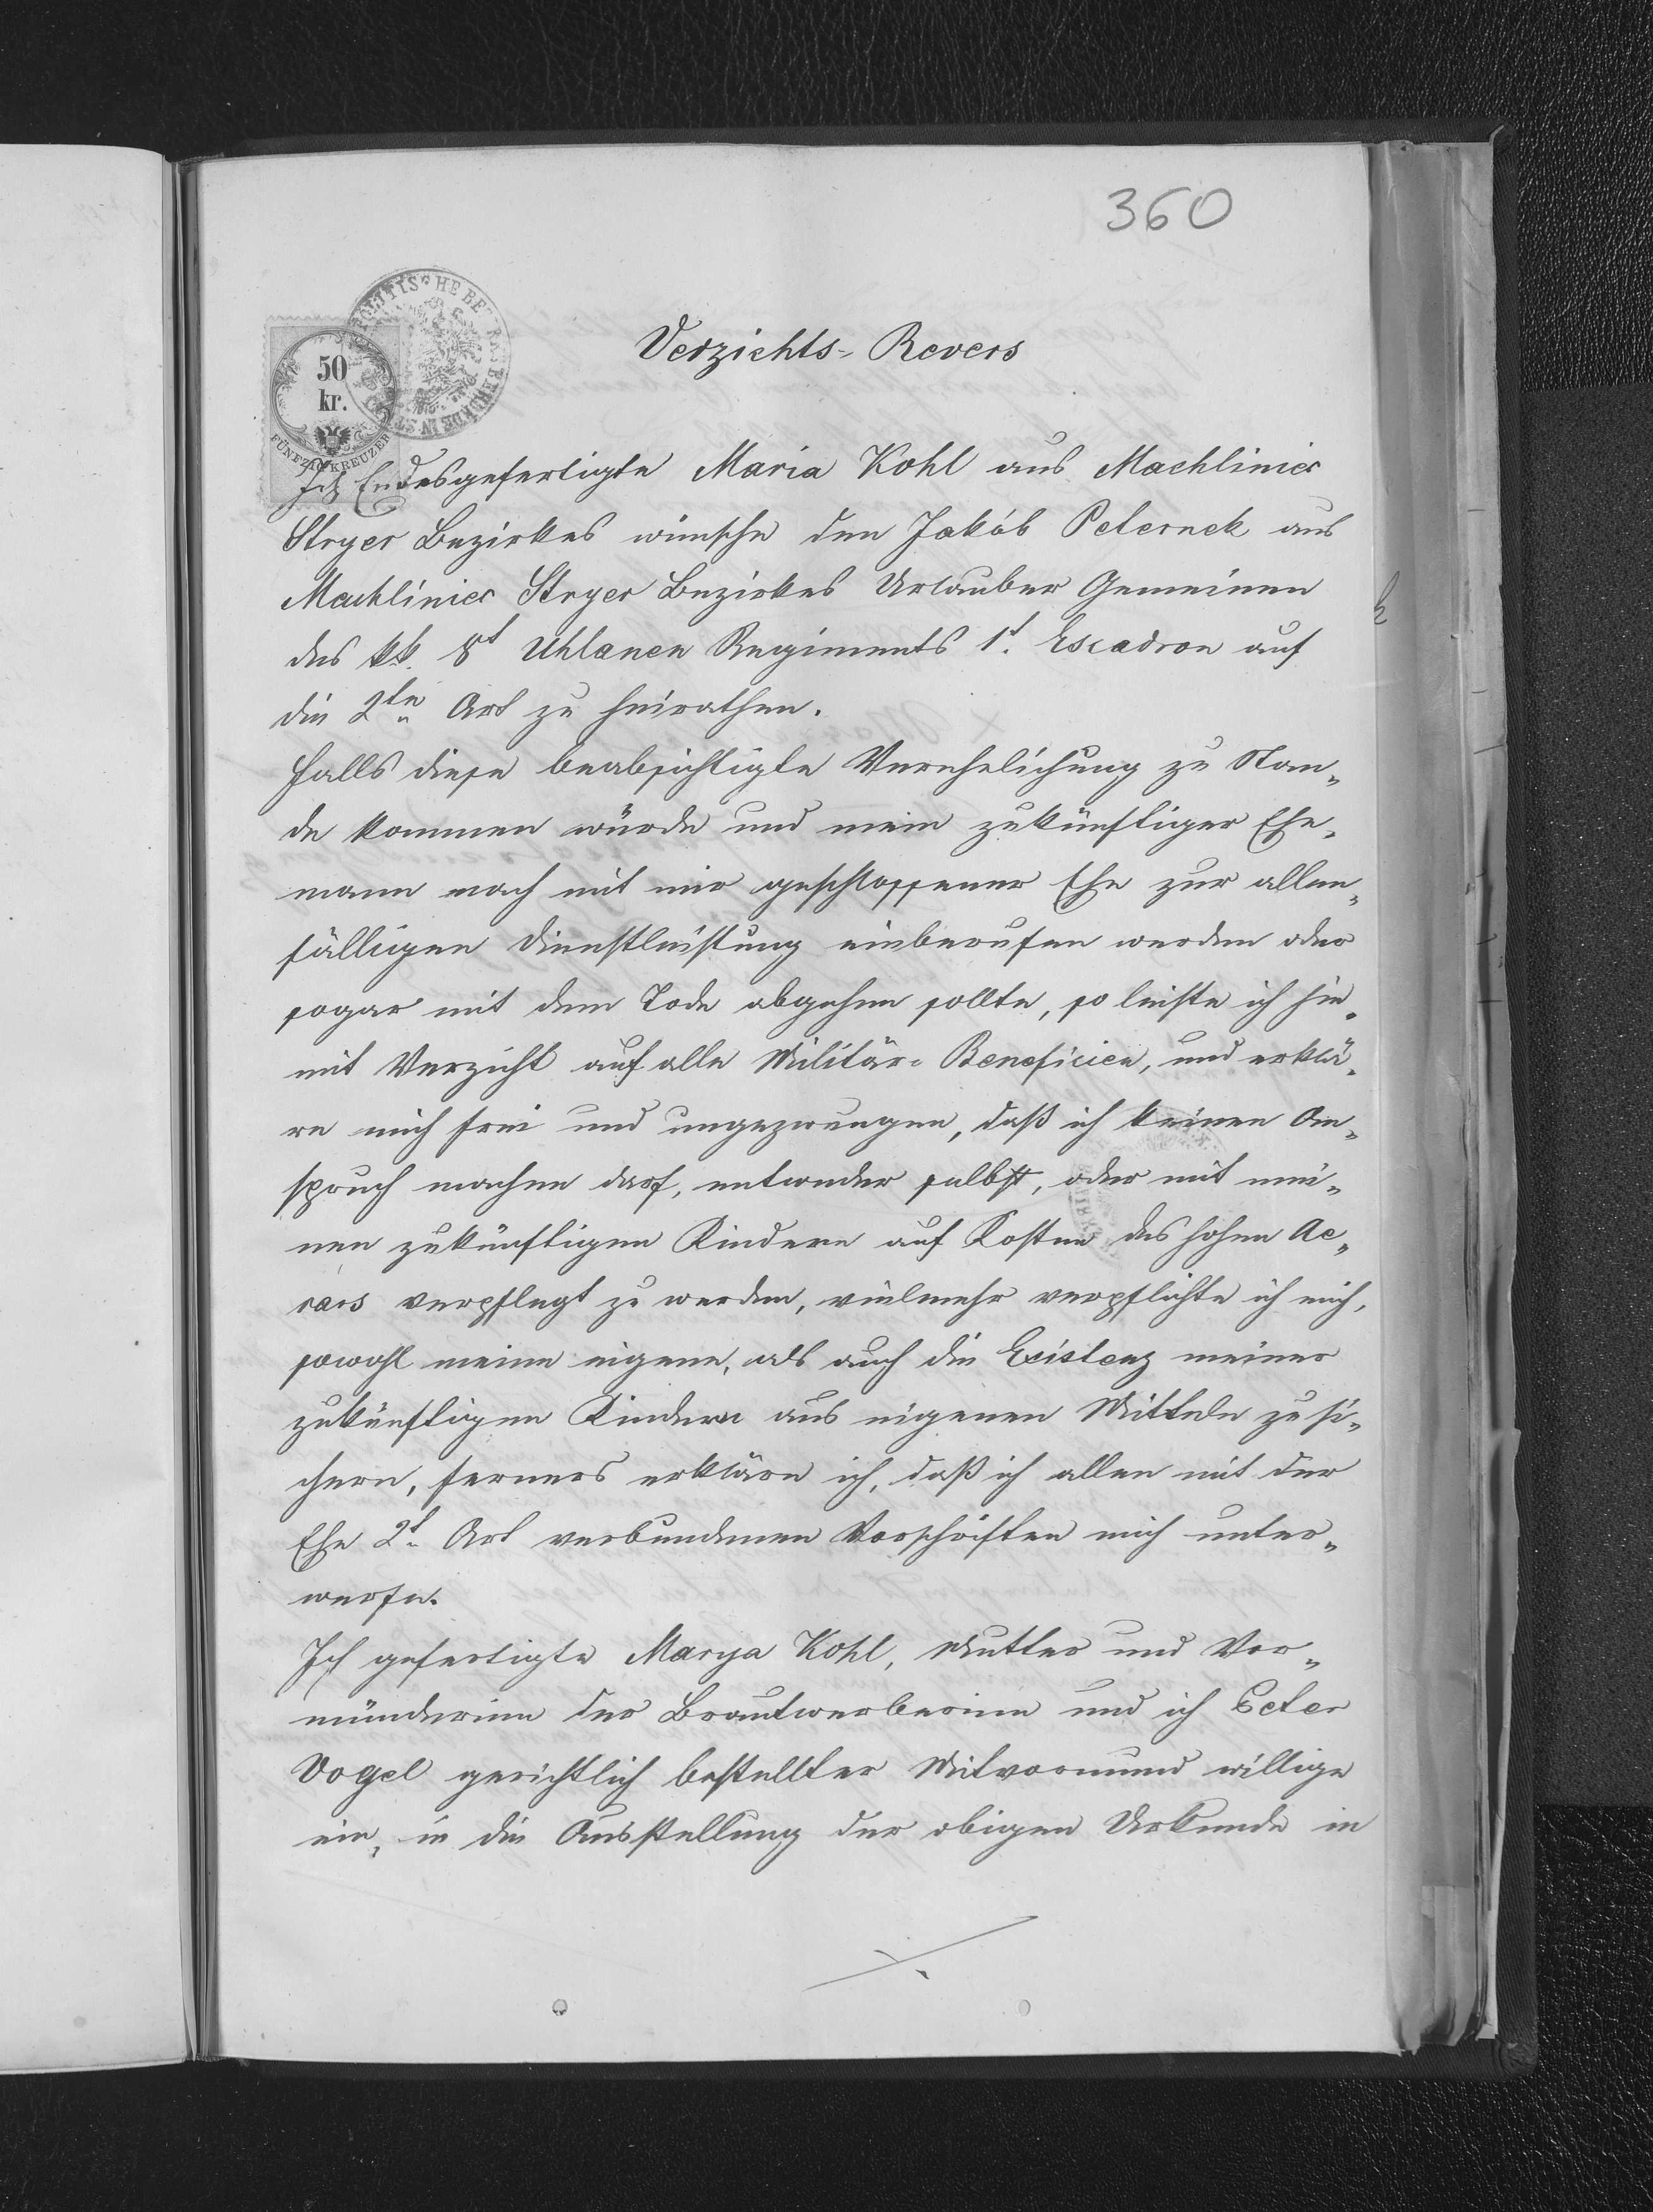 360
POLITISCHE BEZIRKS BEHÖRDE IN
50
kr.
FÜNFZIG KREUZER
Verzichts- Revers
Ich Endesgefertigte Maria Kohl aus Machliniec
Stryer Bezirkes wünsche den Jakób Peternek aus
Machliniec Stryer Bezirkes Urlauber Gemeinen
des kk. 8t Uhlanen Regiments 1t. Escadron auf
die 2te Art zu heirathen.
Falls diese beabsichtigte Verehelichung zu Stan„
de kommen würde und mein zukünftiger Ehe„
mann nach mit mir geschlossener Ehe zur allen„
fälligen Dienstleistung einberufen werden oder
sogar mit dem Tode abgehen sollte, so leiste ich hie„
mit Verzicht auf alle Militär-Beneficien, und erklä„
re mich frei und ungezwungen, daß ich keinen An„
spruch machen darf, entweder selbst, oder mit mei„
nen zukünftigen Kindern auf Kosten des hohen Ae„
rars verpflegt zu werden, vielmehr verpflichte ich mich,
sowohl meine eigene, als auch die Existenz meiner
zukünftigen Kindern aus eigenen Mitteln zu si„
chern, ferners erkläre ich, daß ich allen mit der
Ehe 2t. Art verbundenen Vorschriften mich unter„
werfe.
Ich gefertigte Marya Kohl, Mutter und Vor„
münderinn der Brautwerberinn und ich Peter
Vogel gerichtlich bestellter Mitvormund willige
ein, in die Ausstellung der obigen Urkunde in